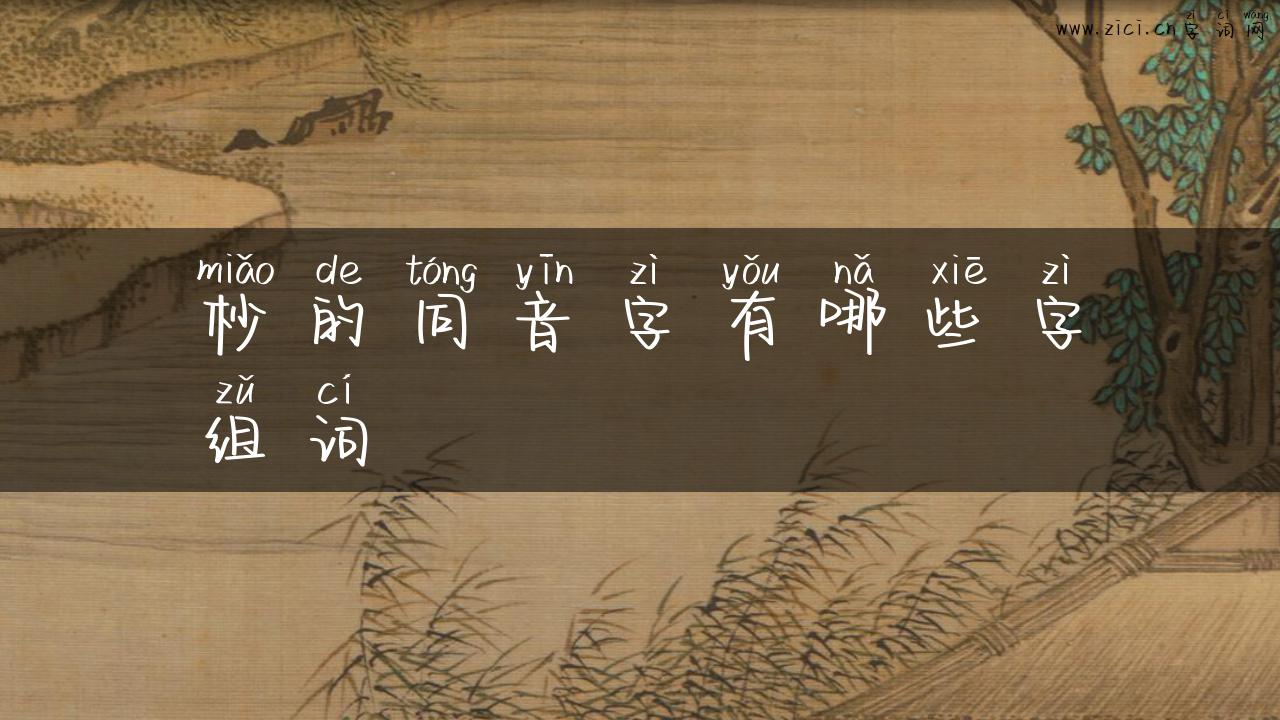 zì cí wǎng
www.zici.cn 字词网
miǎo de tóng yīn zì yǒu nǎ xiē zì
杪的同音字有哪些字
zǔ cí
组词